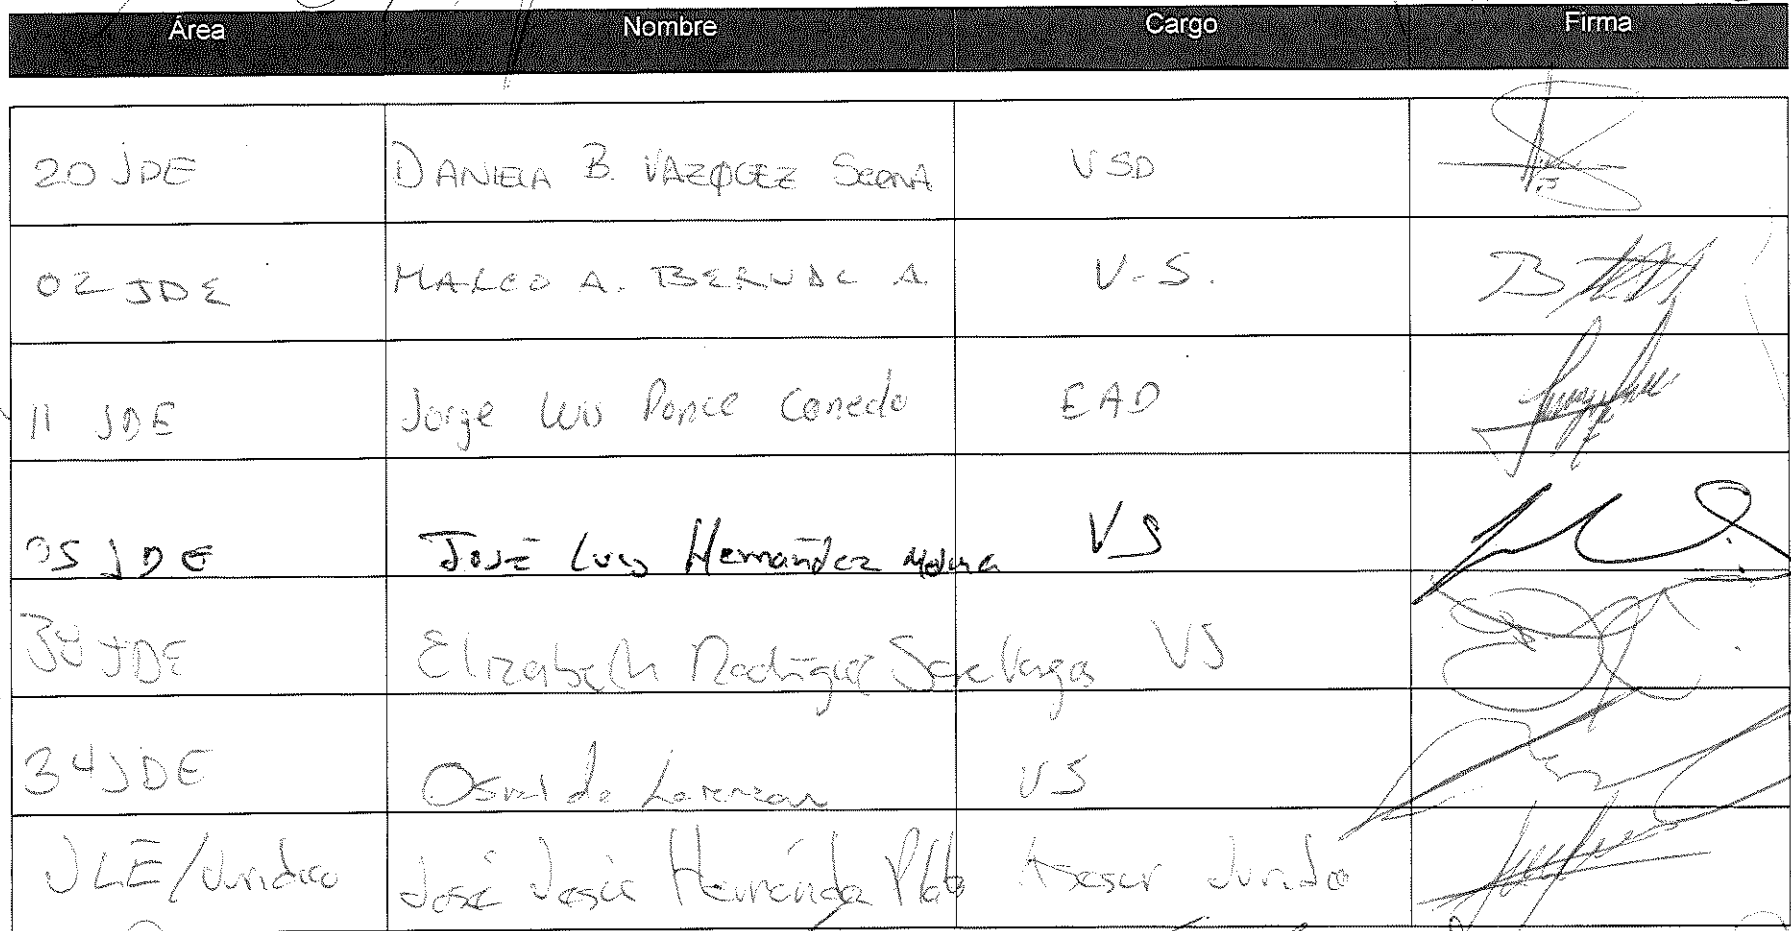 Área Nombre Cargo Firma
20 JDE DANIELA B. VAZQUEZ SERNA VSD
02 JDE MARCO A. BERNAL A. V.S.
11 JDE Jorge Luis Ponce Canedo EAD
05 JDE José Luis Hernández Molina VS
JDE Elizabeth Rodríguez VS
34 JDE Osvaldo VS
JLE/Jurídico José Jesús Hernández Asesor Jurídico